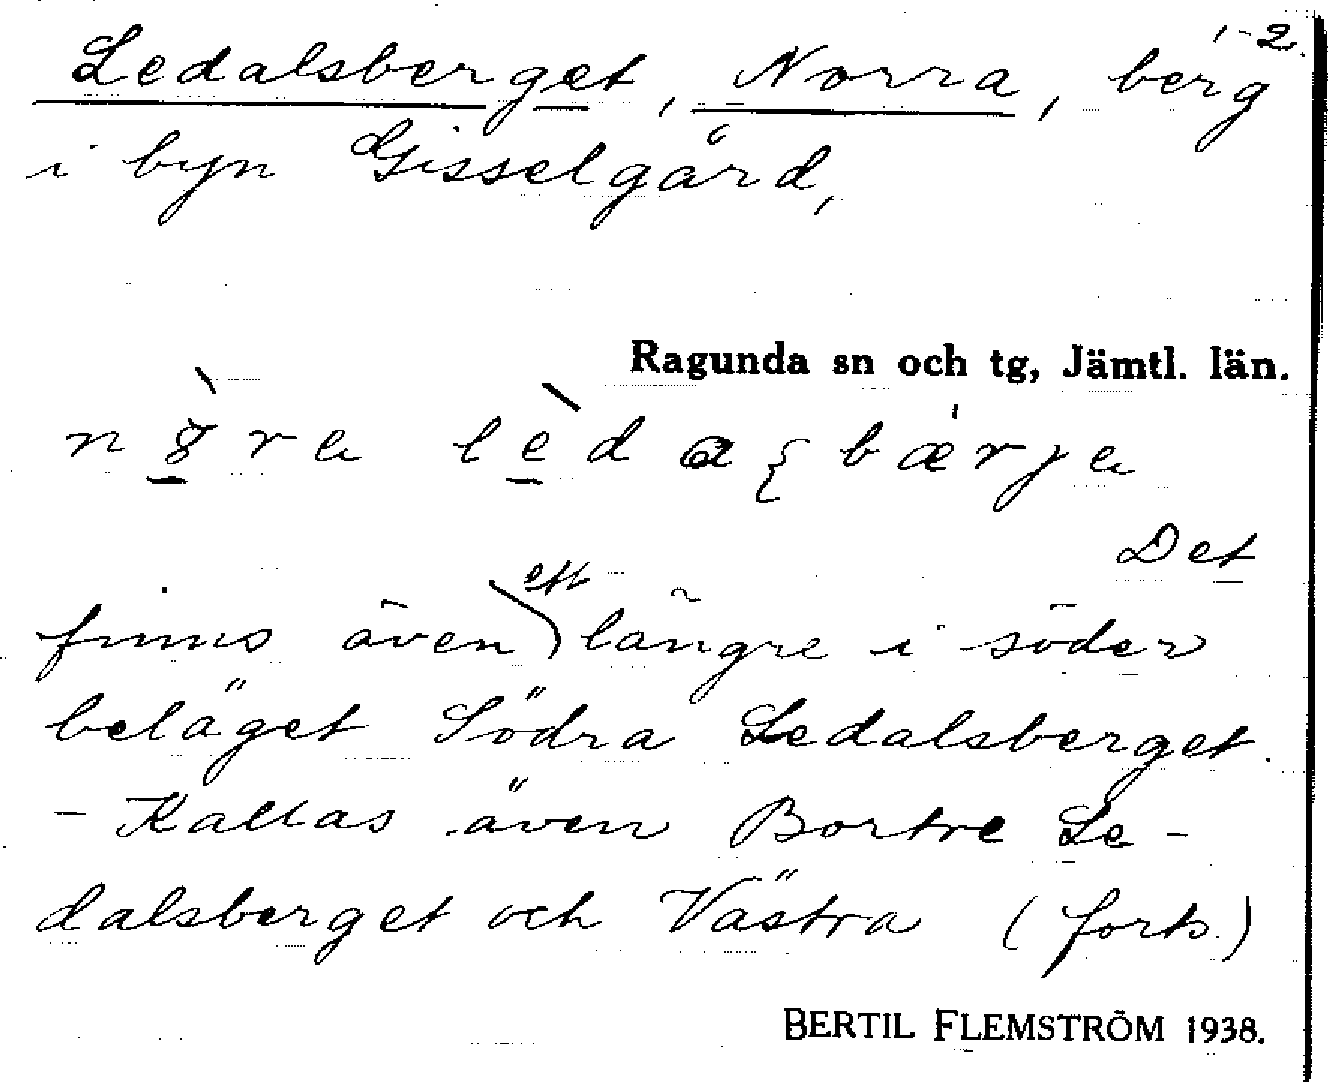 1-2.
Ledalsberget, Norra, berg
i byn Gisselgård,
Ragunda sn och tg, Jämtl. län.
Det
finns även ett längre i söder
beläget Södra Ledalsberget.
- Kallas även Bortre Le-
dalsberget och Västra (forts.)
BERTIL FLEMSTRÖM 1938.